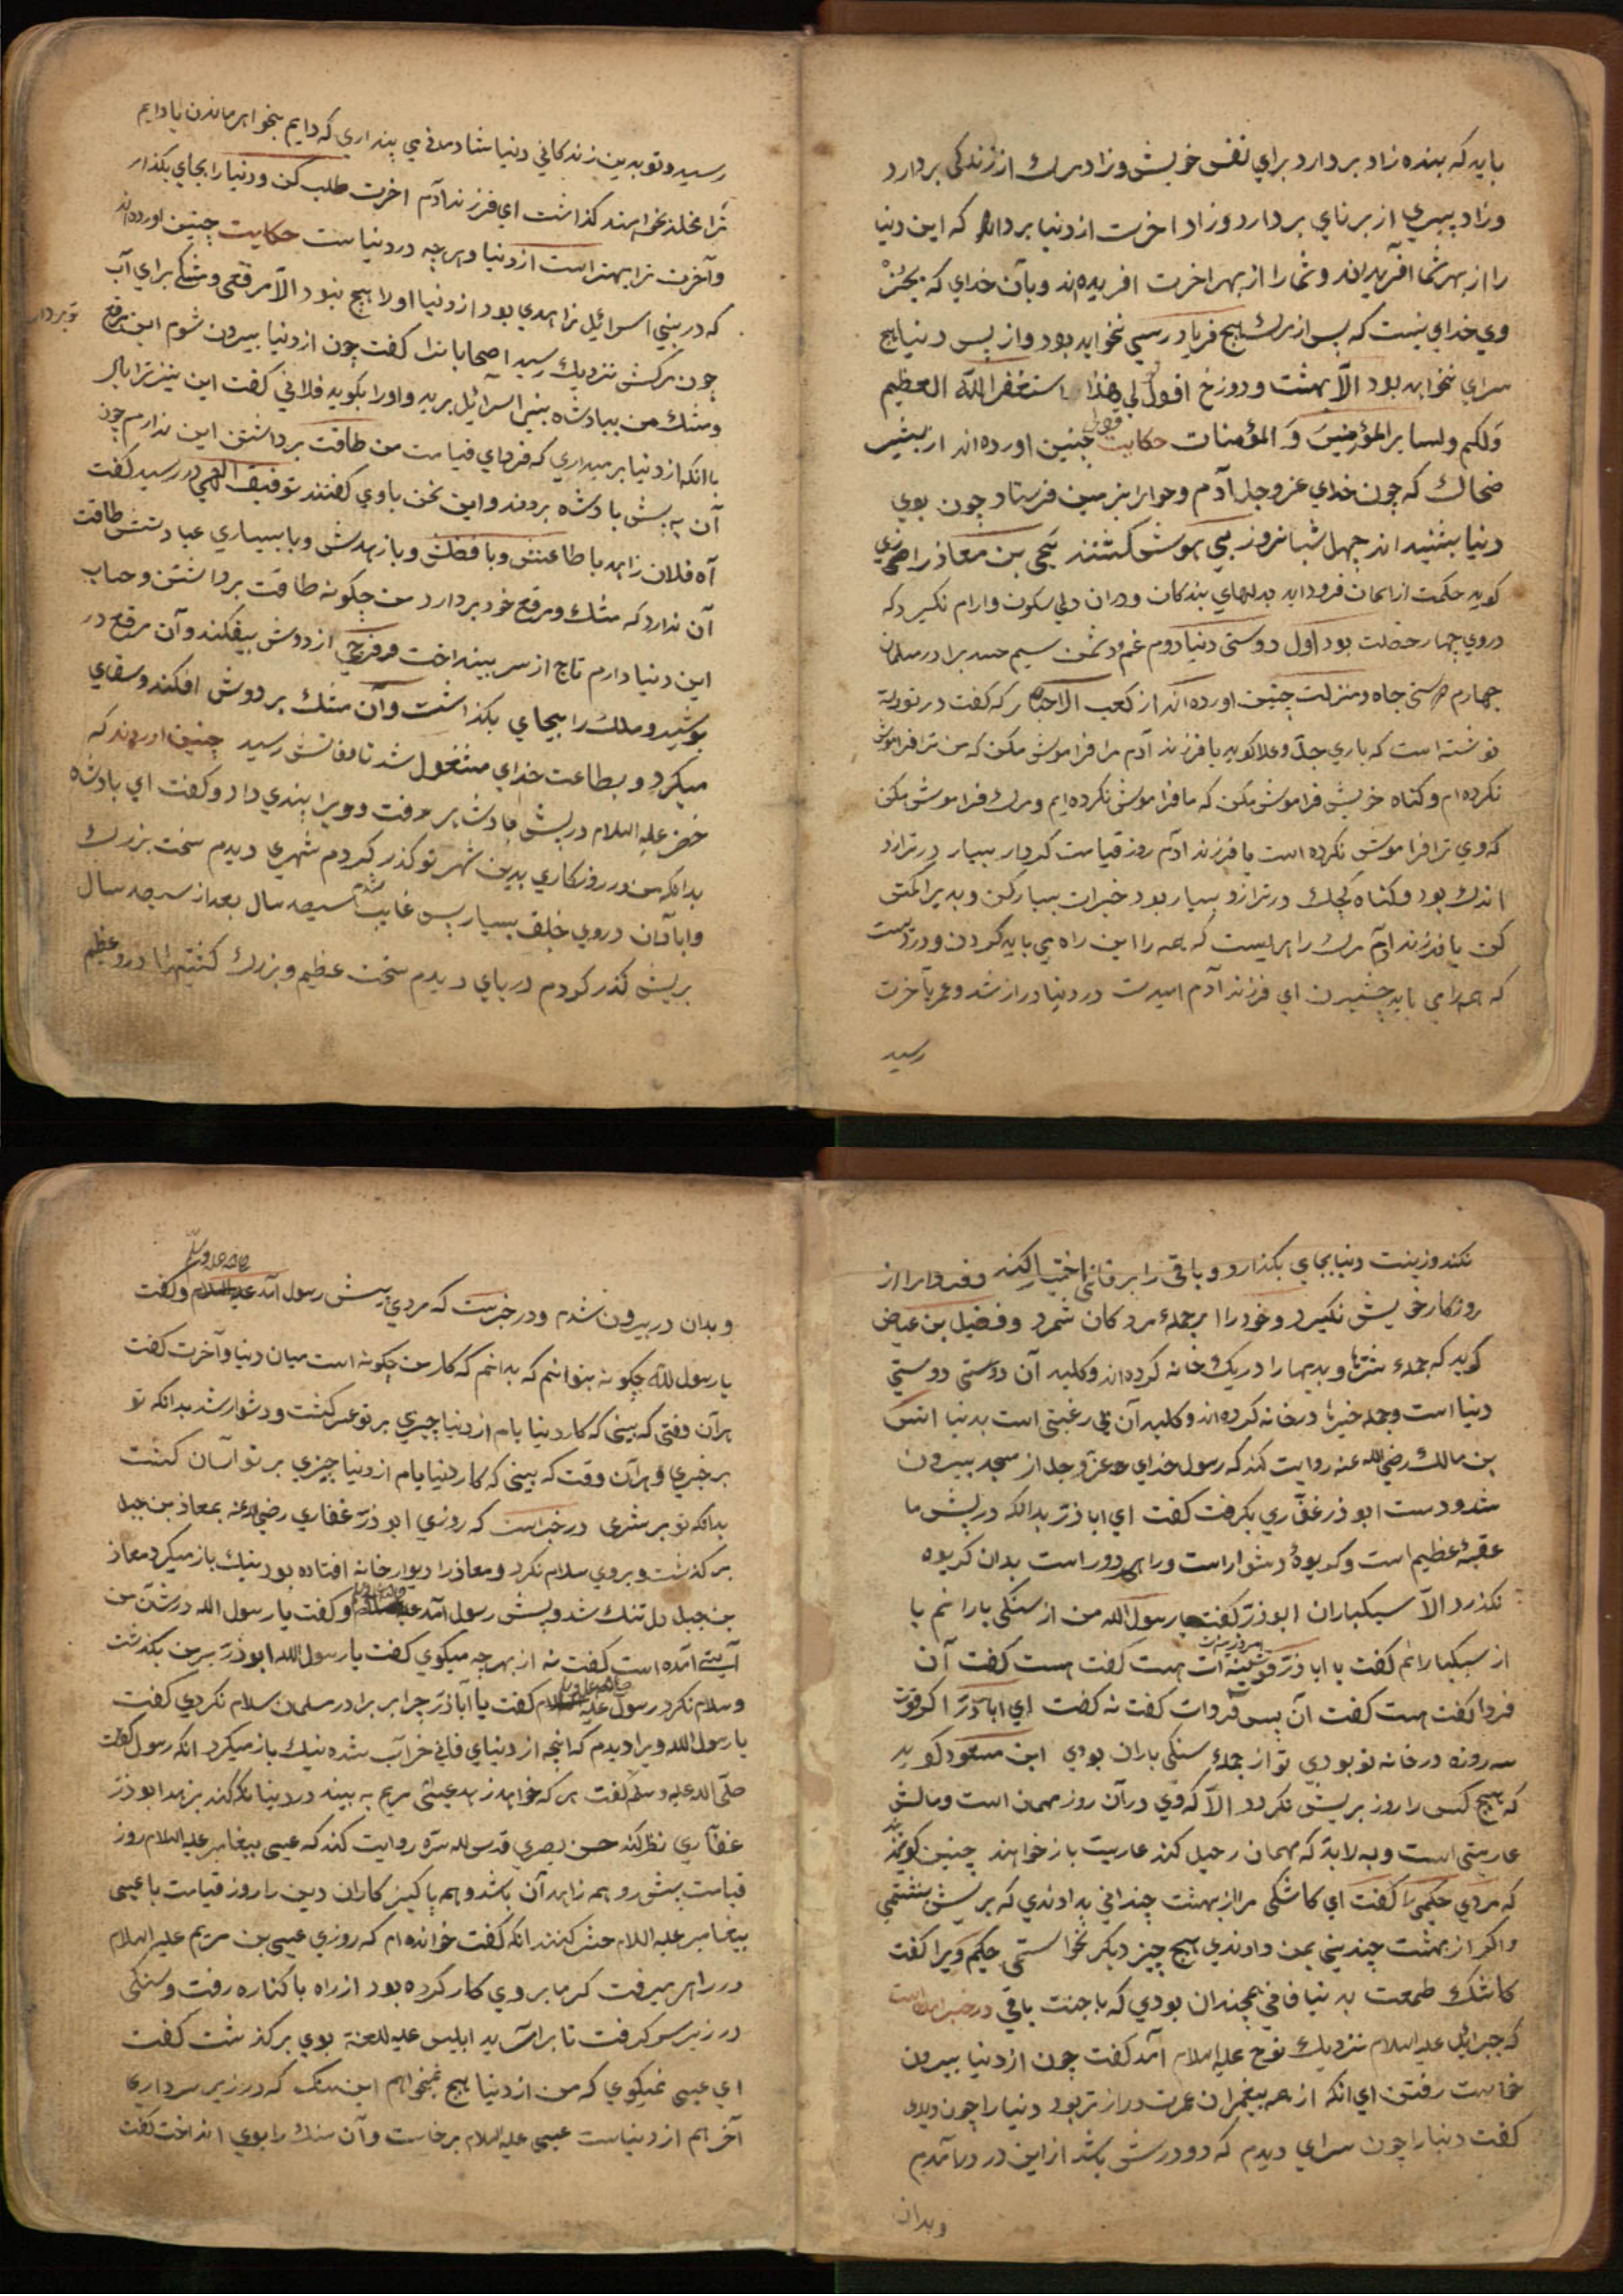 باید که بنده زاد بردارد برای نفس خویش وزاد مرك از زندكی بردارد
وزاد پیری از برنای بردارد وزاد اخرت ازدنیا بردارد که این دنیا
را از بهر شما آفریده اند وشما را از بهر اخرت افریده اند وبآن خدای که بجز
وی خدای نیست که پس از مرك هیچ فریاد رسی نخواهد بود واز پس دنیا هیچ
سرای نخواهد بود الّا بهشت ودوزخ اقول قولی هذا استغفر الله العظیم
ولکم ولسایر المؤمنین و المؤمنات حکایت چنین اورده اند از بشیر
ضحاك که چون خدای عزوجل آدم وحوا را بزمین فرستاد چون بوی
دنیا بشنیدند چهل شبانروز بی هوش کشتند یحی بن معاذ رازی
کوید حکمت از اسمان فرود اید بدلهای بندکان ودران دلی سکون وارام نکیرد که
دروی چهار خصلت بود اول دوستی دنیا دوم غم سیم حسد برادر مسلمان
چهارم دوستی جاه ومنزلت چنین اورده اند از کعب الاحبار که کفت در توریة
نوشته است که باری جلّ وعلا کوید یا فرزند آدم مرا فراموش مکن که من ترا فراموش
نکرده ام وکناه خویش فراموش مکن که ما فراموش نکرده ایم ومرك فراموش مکن
که وی ترا فراموش نکرده است یا فرزند ادم روز قیامت کردار بسیار در ترازو
اندك بود وکناه کوچك در ترازو بسیار بود خیرات بسیار کن وبدی را کمتر
کن یا فرزند ادم مرك راهیست که همه را این راه می باید کردن
که همه را می باید چشیدن ای فرزند آدم امیدت در دنیا دراز شد وعمر بآخرت
رسید
رسید وتو بدین زندکانی دنیا شادمانی می پنداری که دایم بخواهی ماندن یا دایم
ترا مخلد بخواهند کذاشت ای فرزند آدم اخرت طلب کن ودنیا را بجای بکذار
وآخرت ترا بهتر است از دنیا وهرچه در دنیاست حکایت چنین اورده اند
که در بنی اسرائیل زاهدی بود از دنیا اورا هیچ نبود الّا مرقعی ومشکی برای آب
چون مرکش نزدیك رسید اصحابانرا کفت چون از دنیا بیرون شوم این مرقع
ومشك من ببادشاه بنی اسرائیل برید واورا بکوید فلانی کفت این نیز ترا باد
باانکه از دنیا برمیداری که فردای قیامت من طاقت برداشتن این ندارم چون
آن به پیش بادشاه بردند واین سخن باوی کفتند توفیق الهی در رسید کفت
آه فلان زاهد با طاعتش وبا فضلش وبا زهدش وبا بسیاری عبادتش طاقت
آن ندارد که مشك ومرقع خود بردارد من چکونه طاقت برداشتن وحساب
این دنیا دارم تاج از سر بینداخت از دوش بیفکند وآن مرقع در
بوشید وملك را بجای بکذاشت وآن مشك بر دوش افکند وسقای
میکرد وبطاعت خدای مشغول شد تا وفاتش رسید چنین اورده اند که
خضر علیه السلام در پیش بادشاهی رفت وویرا بندی داد وکفت ای بادشاه
بدانکه من در روزکاری بدین شهر تو کذر کردم شهری دیدم سخت بزرك
وابادان دروی خلق بسیار پس غایب شدم سیصد سال بعد از سیصد سال
بریش کذر کردم دریای دیدم سخت عظیم وبزرك کشتیها درو عظیم
نکند وزینت دنیا بجای بکذارد وباقی را بر فانی اختیار کند وفردا را از
روزکار خویش نکیرد وخود را از جملهٔ مردکان شمرد وفضیل بن عیاض
کوید که جملهٔ شرّها وبدیها را در یك خانه کرده اند وکلید آن دوستی دوستی
دنیا است وجمله خیرها در خانه کرده اند وکلید آن بی رغبتی است بدنیا انس
بن مالك رضی الله عنه روایت کند که رسول خدای عزوجل از مسجد بیرون
شد ودست ابوذر غفّاری بکرفت کفت ای اباذر بدانکه در پیش ما
عقبهٔ عظیم است وکریوهٔ دشوار است وراهی دور است بدان کریوه
نکذرد الّا سبکباران ابوذر کفت یا رسول الله من از سنکی بارانم یا
از سبکبارانم کفت یا اباذر قوت امروزینه ات هست کفت هست کفت آن
فردا کفت هست کفت آن پس فردات کفت نه کفت ای اباذر اکر قوت
سه روزه در خانه تو بودی تو از جملهٔ سنکی باران بودی ابن مسعود کوید
که هیچ کس را روز بریش نکردد الّا که وی در آن روز مهمان است ومالش
عاریتی است وبه لابد که مهمان رحیل کند عاریت باز خواهند چنین کویند
که مردی حکیمی را کفت ای کاشکی مرا از بهشت چندانی بدادندی که بریش بنشتمی
واکر از بهشت چندینی بمن دادندی هیچ چیز دیکر نخواستمی حکیم ویرا کفت
کاشك طمعت به دنیا فانی همچندان بودی که با جنت باقی در خبر امده است
که جبرائیل علیه السلام نزدیك نوح علیه السلام آمد کفت چون از دنیا بیرون
خواست رفتن ای انکه از همه پیغمبران عمرت دراز تر بود دنیا را چون دیدی
کفت دنیا را چون سرای دیدم که دو درش باشد از این در درآمدم
وبدان
وبدان در بیرون شدم ودر خبرست که مردی پیش رسول آمد صلی الله علیه وسلم وکفت
یا رسول الله چکونه بتوانم که بدانم که کار من چکونه است میان دنیا وآخرت کفت
هر آن وقتی که بینی که کار دنیا یا هم از دنیا چیزی بر تو عسر کشت ودشوار شد بدانکه تو
بر خیری وهر آن وقت که بینی که کار دنیا یا هم از دنیا چیزی بر تو آسان کشت
بدانکه تو بر شری در خبراست که روزی ابوذر غفاری رضی الله عنه بمعاذ بن جبل
برکذشت وبروی سلام نکرد ومعاذ را دیوار خانه افتاده بود نیك باز میکرد معاذ
بن جبل دل تنك شد وپیش رسول آمد وکفت یا رسول الله در شآن من
آیتی آمده است کفت نه از بهر چه میکوی کفت یا رسول الله ابوذر بر من بکذشت
وسلام نکرد رسول صلی الله علیه وسلم کفت یا اباذر چرا بر برادر مسلمان سلام نکردی کفت
یا رسول الله ویرا دیدم که انچه از دنیای فانی خراب شده نیك باز میکرد انکه رسول کفت
صلّی الله علیه وسلم کفت هر که خواهد زهد عیسی مریم به بیند در دنیا نکه کند بزهد ابوذر
غفّاری نظر کند حسن بصری قدس الله سره روایت کند که عیسی پیغامبر علیه السلام روز
قیامت پیش رو هم زاهدان باشد وهم پاکیز کاران دین را روز قیامت با عیسی
پیغامبر علیه السلام حشر کنند انکه کفت خوانده ام که روزی عیسی بن مریم علیه السلام
در راهی میرفت کرما بر وی کار کرده بود از راه با کناره رفت وسنکی
در زیر سر کرفت تا براساید ابلیس علیه اللعنة بوی برکذشت کفت
ای عیسی نمیکوی که من از دنیا هیچ نمیخواهم این سنك که در زیر سر داری
آخر هم از دنیاست عیسی علیه السلام برخاست وآن سنك را بوی انداخت کفت